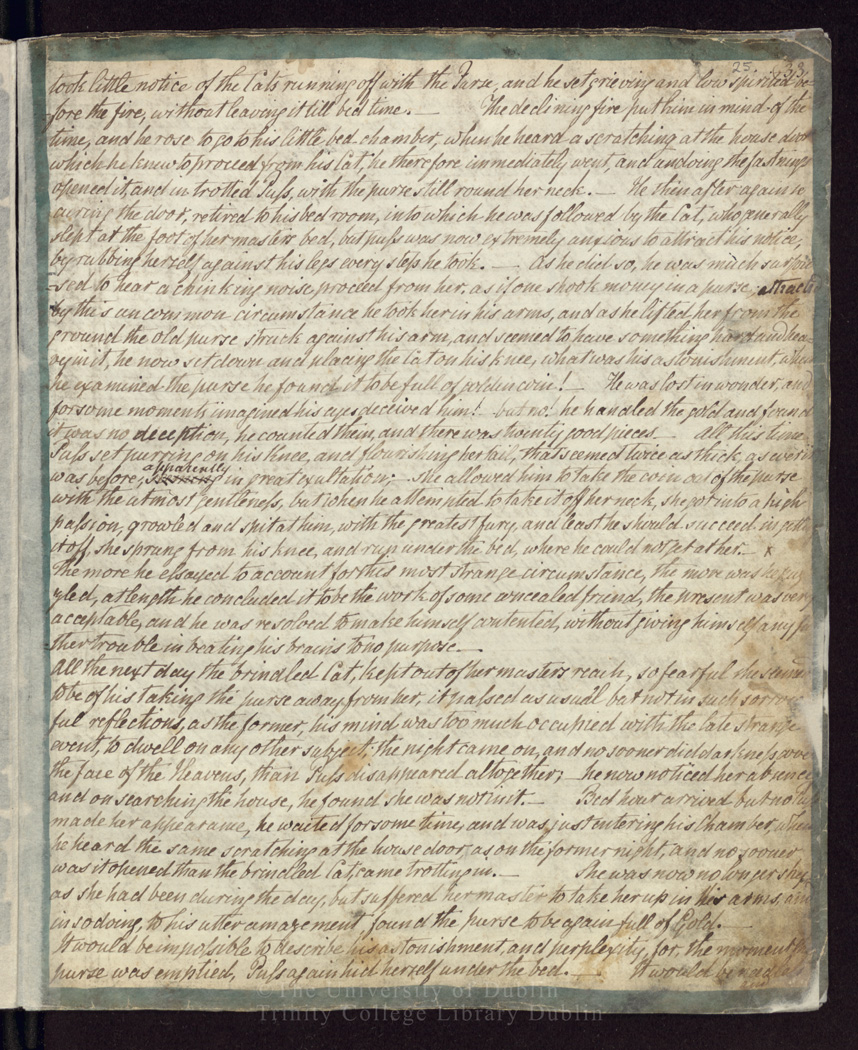 25 33
took little notice of the Cats running off with the Purse, and he set grieving and low spirited be=
fore the fire, without leaving it till bed time. — The declining fire put him in mind of the
time, and he rose to go to his little bed chamber, when he heard a scratching at the house door
which he knew to proceed from his Cat, he therefore immediately went, and undoing the fastnings
opened it, and in trotted Puss, with the purse still round her neck. — He then after again se
curing the door, retired to his bed room, into which he was followed by the Cat, who generally
slept at the foot of her masters bed, but puss was now extremely anxious to attract his notice,
by rubbing herself against his legs every step he took. — As he did so, he was much surpri
=sed to hear a chinking noise proceed from her, as if one shook money in a purse, attracted
by this uncommon circumstance he took her in his arms, and as he lifted her from the
ground the old purse struck against his arm, and seemed to have something hard and hea=
vy in it, he now set down and placing the Cat on his knee, what was his astonishment, when
he examined the purse he found it to be full of golden coin! He was lost in wonder, and
for some moments imagined his eyes deceived him! but no! he handled the gold and found
it was no deception, he counted them, and there was twenty good pieces. All this time
Puss set purring on his knee, and flourishing her tail, that seemed twice as thick as ever it
was before, apparently in great exultation; — she allowed him to take the coin out of the purse
with the utmost gentleness, but when he attempted to take it of her neck, she got into a high
passion, growled and spit at him, with the greatest fury, and least he should succeed in getting
it off, she sprung from his knee, and run under the bed, where he could not get at her. — x
The more he essayed to account for this most strange circumstance, the more was he puz
zled, at length he concluded it to be the work of some concealed friend, the present was very
acceptable, and he was resolved to make himself contented, without giving himself any fur
ther trouble in beating his brains to no purpose. —
All the next day the brindled Cat, kept out of her masters reach, so fearful she seemed
to be of his taking the purse away from her, it passed as usual but not in such sorrow
ful reflections, as the former, his mind was too much occupied with the late strange
event, to dwell on any other subject; the night came on, and no sooner did darkness cover
the face of the Heavens, than Puss disappeared altogether; — he now noticed her absence
and on searching the house, he found she was not in it. — Bed hour arrived but no Puss
made her appearance, he waited for some time, and was just entering his Chamber, when
he heard the same scratching at the house door, as on the former night, and no sooner
was it opened than the brindled Cat came trotting in. — She was now no longer shy
as she had been during the day, but suffered her master to take her up in his arms, and
in so doing, to his utter amazement, found the purse to be again full of Gold. —
It would be impossible to describe his astonishment, and perplexity, for, the moment the
purse was emptied, Puss again hid herself under the bed. — It would be
© The University of Dublin
Trinity College Library Dublin